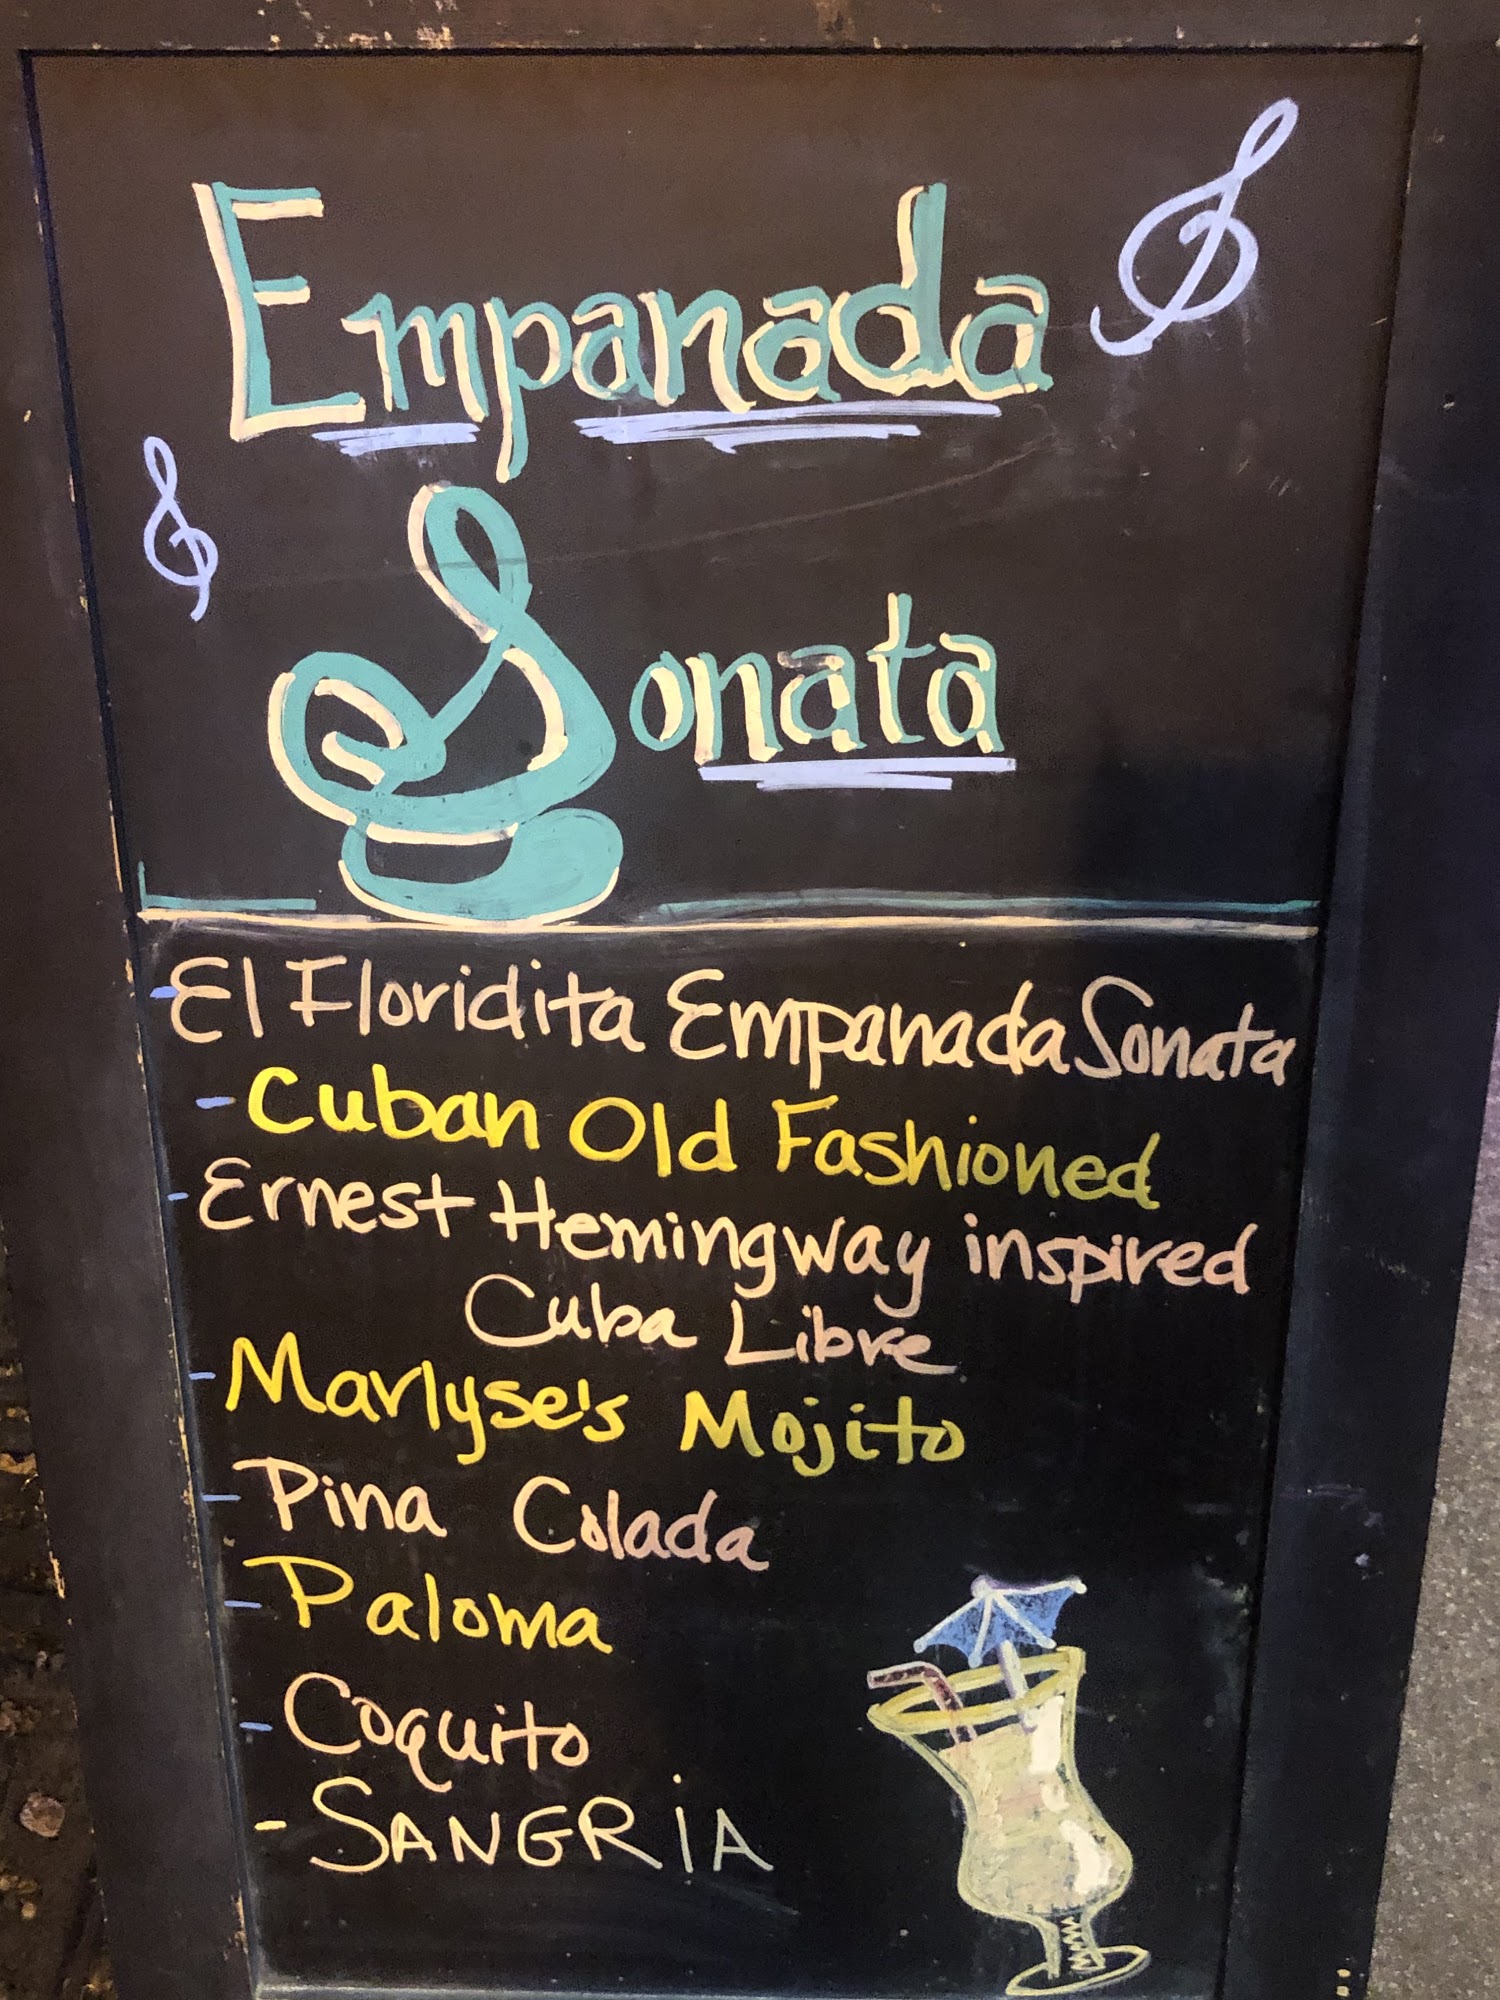 Empanada
Sonata
-El Floridita Empanada Sonata
-Cuban Old Fashioned
-Ernest Hemingway inspired
Cuba Libre
-Marlyse's Mojito
-Pina Colada
-Paloma
-Coquito
-SANGRiA